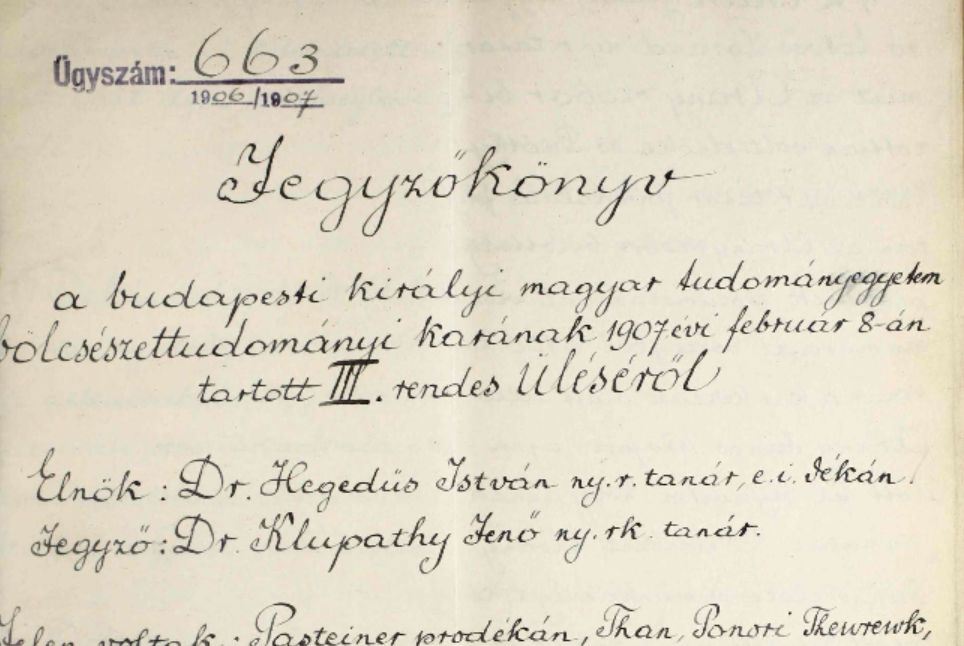 Ügyszám: 663
1906/1907
Jegyzőkönyv
a budapesti királyi magyar tudományegyetem
bölcsészettudományi karának 1907 évi február 8-án
tartott III. rendes üléséről
Elnök: Dr. Hegedüs István ny. r. tanár, e. i. dékán.
Jegyző: Dr. Klupathy Jenő ny. rk. tanár.
Jelen voltak: Pasteiner prodékán, Than, Ponori Thewrewk,